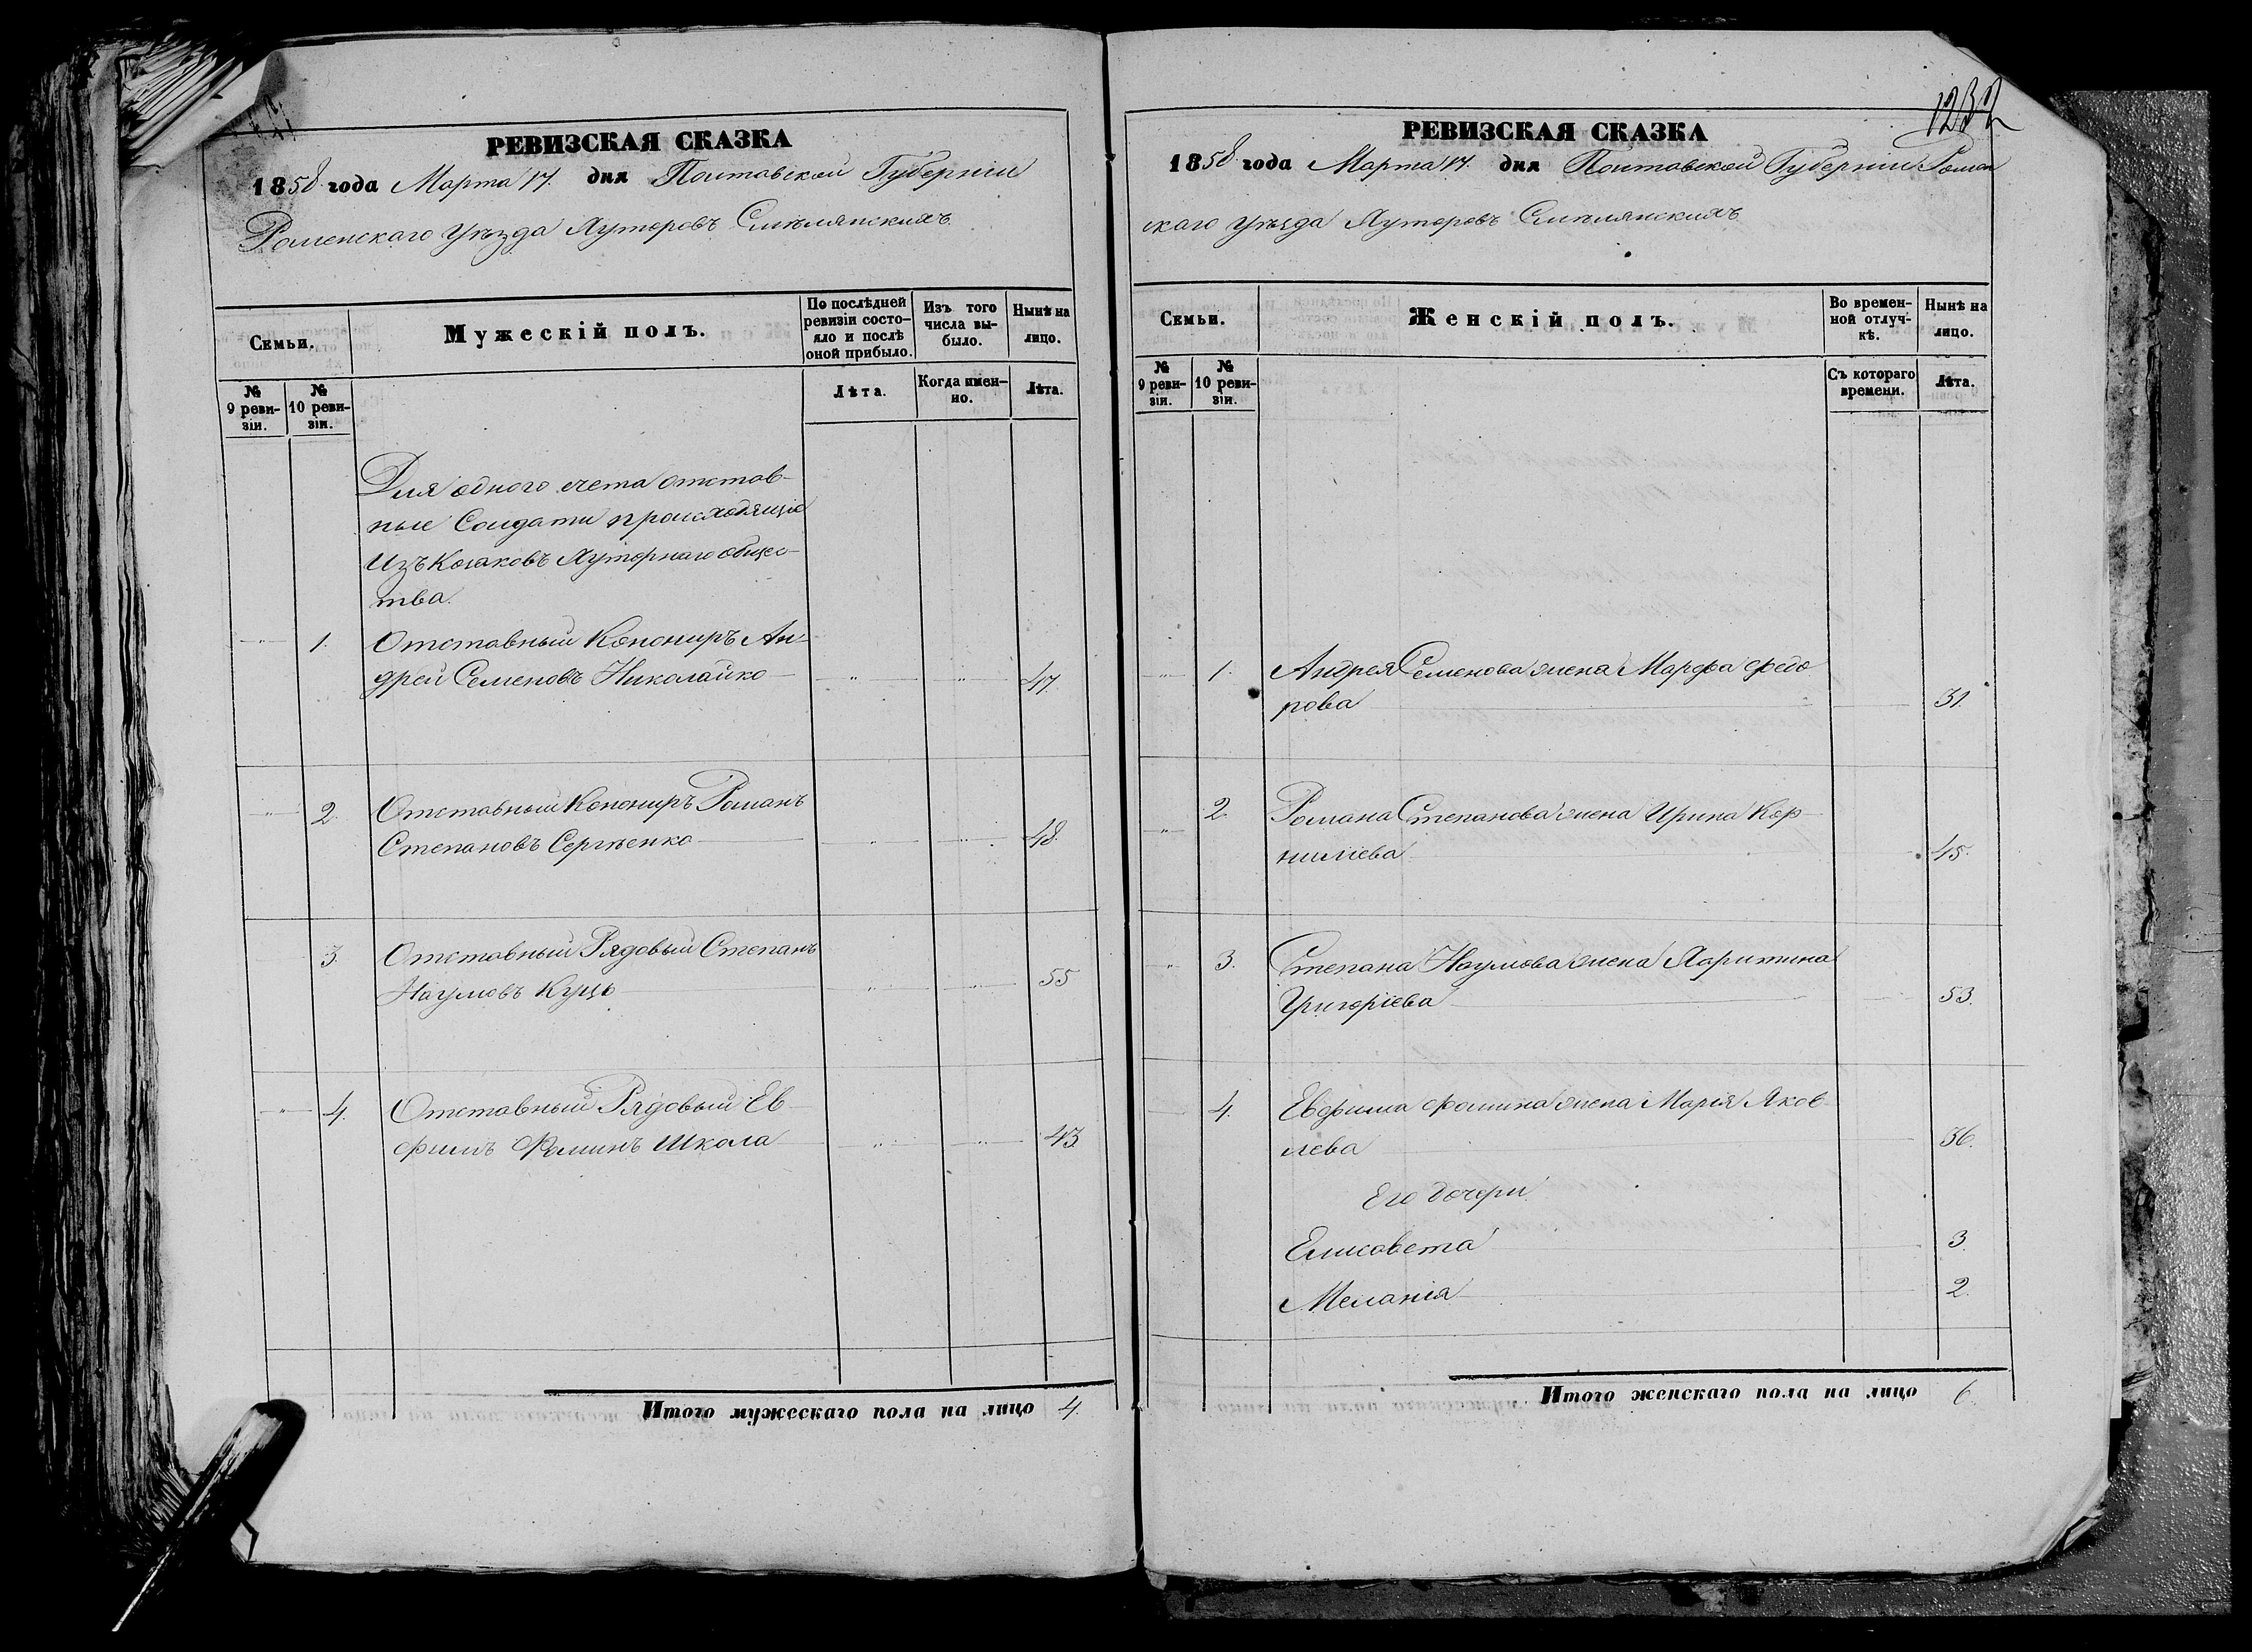 РЕВИЗСКАЯ СКАЗКА
1858 года Марта 17. дня Полтавской Губерніи
Роменскаго Уѣзда Хуторовъ Смѣлянскихъ
Семьи.
Мужескій полъ.
По послѣдней ревизіи состояло и послѣ оной прибыло.
Изъ того числа выбыло.
Нынѣ на лицо.
№ 9 ревизіи.
№ 10 ревизіи.
Лѣта.
Когда именно.
Лѣта.
Для одного счета отстав-
ные Солдати происходящіе
Изъ Козаковъ Хуторнаго общес-
тва.
1. Отставный Канониръ Ан-
дрей Семеновъ Николайко 47.
2. Отставный Канониръ Романъ
Степановъ Сергѣенко 48.
3. Отставный Рядовый Степанъ
Наумовъ Куць 55
4. Отставный Рядовый Ев-
фимъ Фоминъ Школа 43
Итого мужескаго пола на лицо 4.
1232
РЕВИЗСКАЯ СКАЗКА
1858 года Марта 17. дня Полтавской Губерніи Ромен
скаго Уѣзда Хуторовъ Смѣлянскихъ
Семьи.
Женскій полъ.
Во временной отлучкѣ.
Нынѣ на лицо.
№ 9 ревизіи.
№ 10 ревизіи.
Съ котораго времени.
Лѣта.
1. Андрея Семенова жена Марфа Федо
рова 31.
2. Романа Степанова жена Ирина Кор-
ниліева 45.
3. Степана Наумова жена Харитина
Григоріева 53.
4. Евфима Фомина жена Марія Яков
лева 36.
Его дочери
Елисавета 3.
Меланія 2.
Итого женскаго пола на лицо 6.